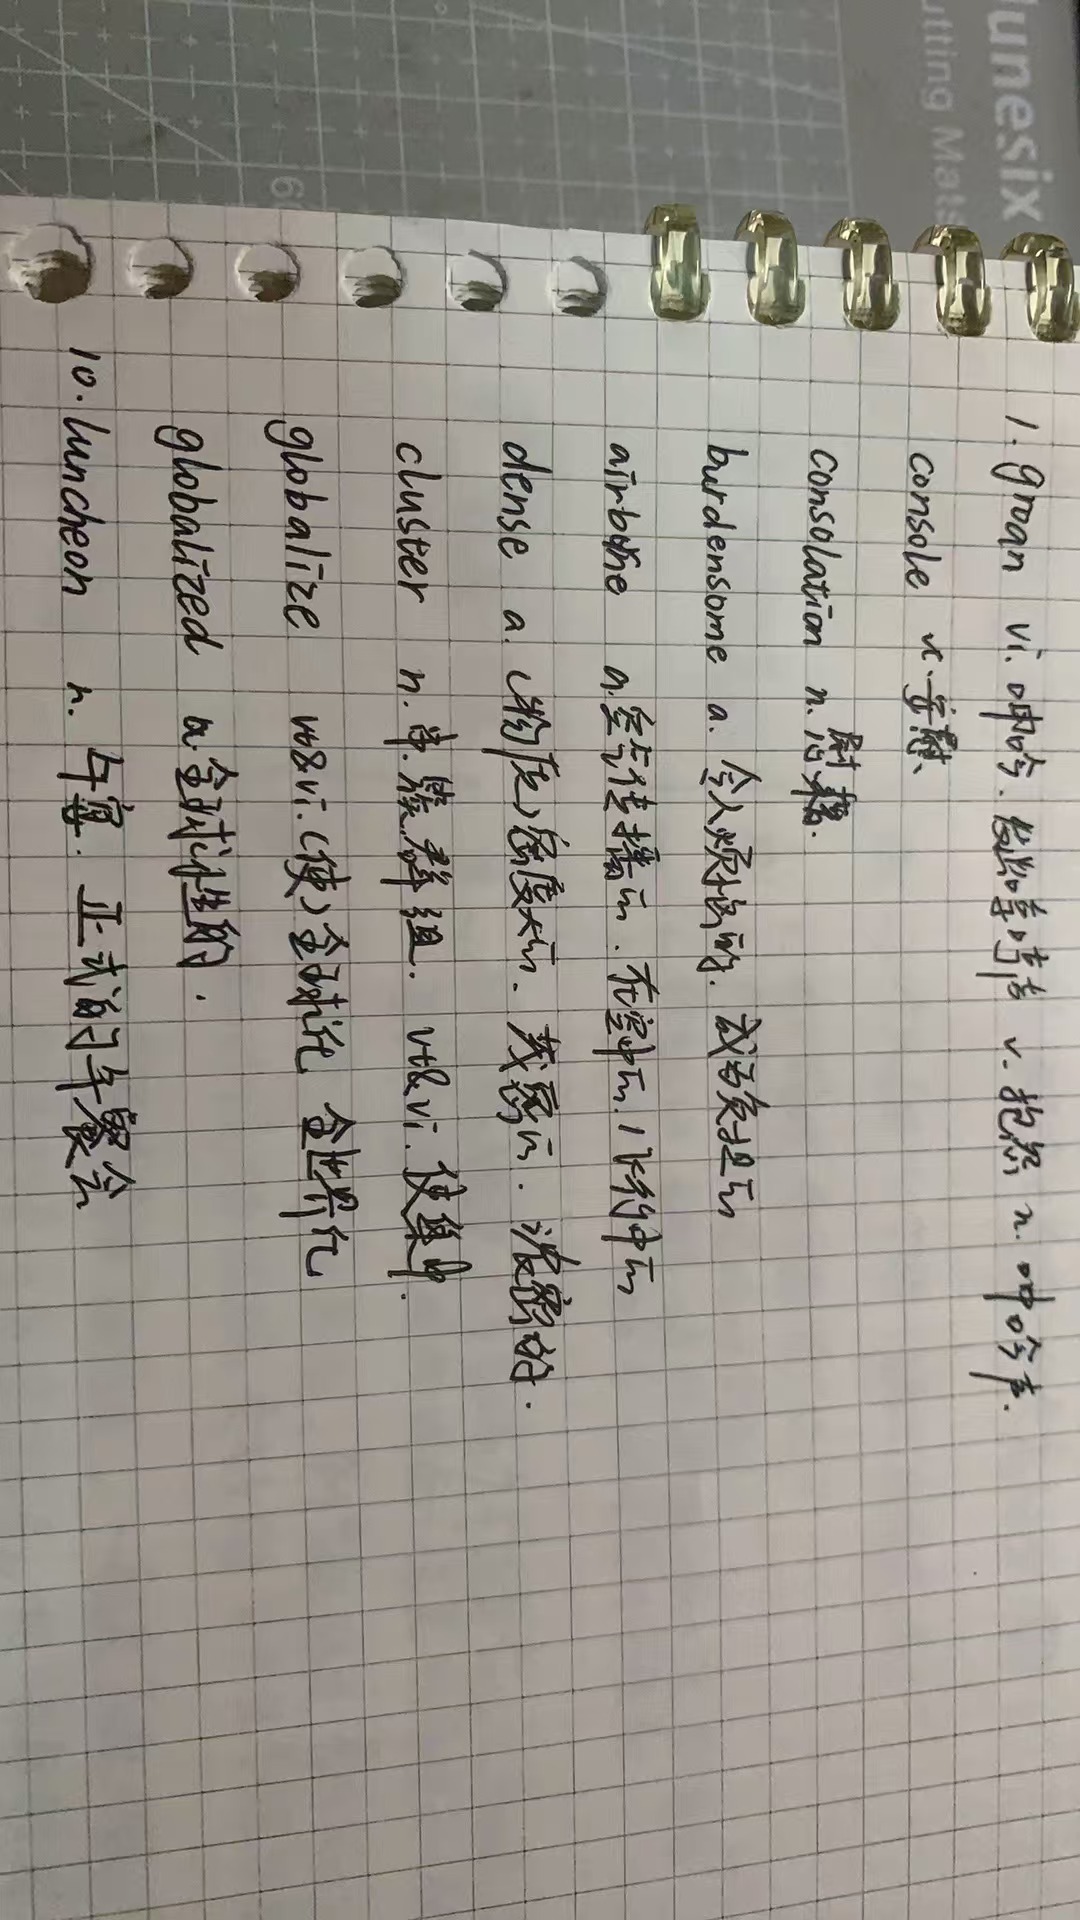 unesix
utting Mats
6
1. groan vi. 呻吟. 发出嘎吱声 v. 抱怨 n. 呻吟声.
console vt. 安慰、
consolation n. 慰藉.
burdensome a. 令人烦恼的. 成为负担的
airborne a. 空气传播的. 在空中的. 飞行中的
dense a. (物质)密度大的. 茂密的. 浓密的.
cluster n. 串.簇.群.组. vt&vi. 使集中.
globalize vt&vi. (使)全球化 全世界化
globalized a. 全球性的.
10. luncheon n. 午宴. 正式的午餐会